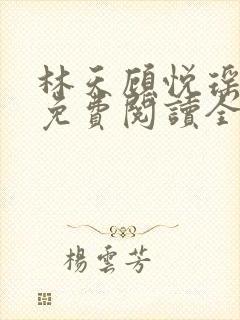 林天顾悦瑶
免費閱讀全
楊雲芳